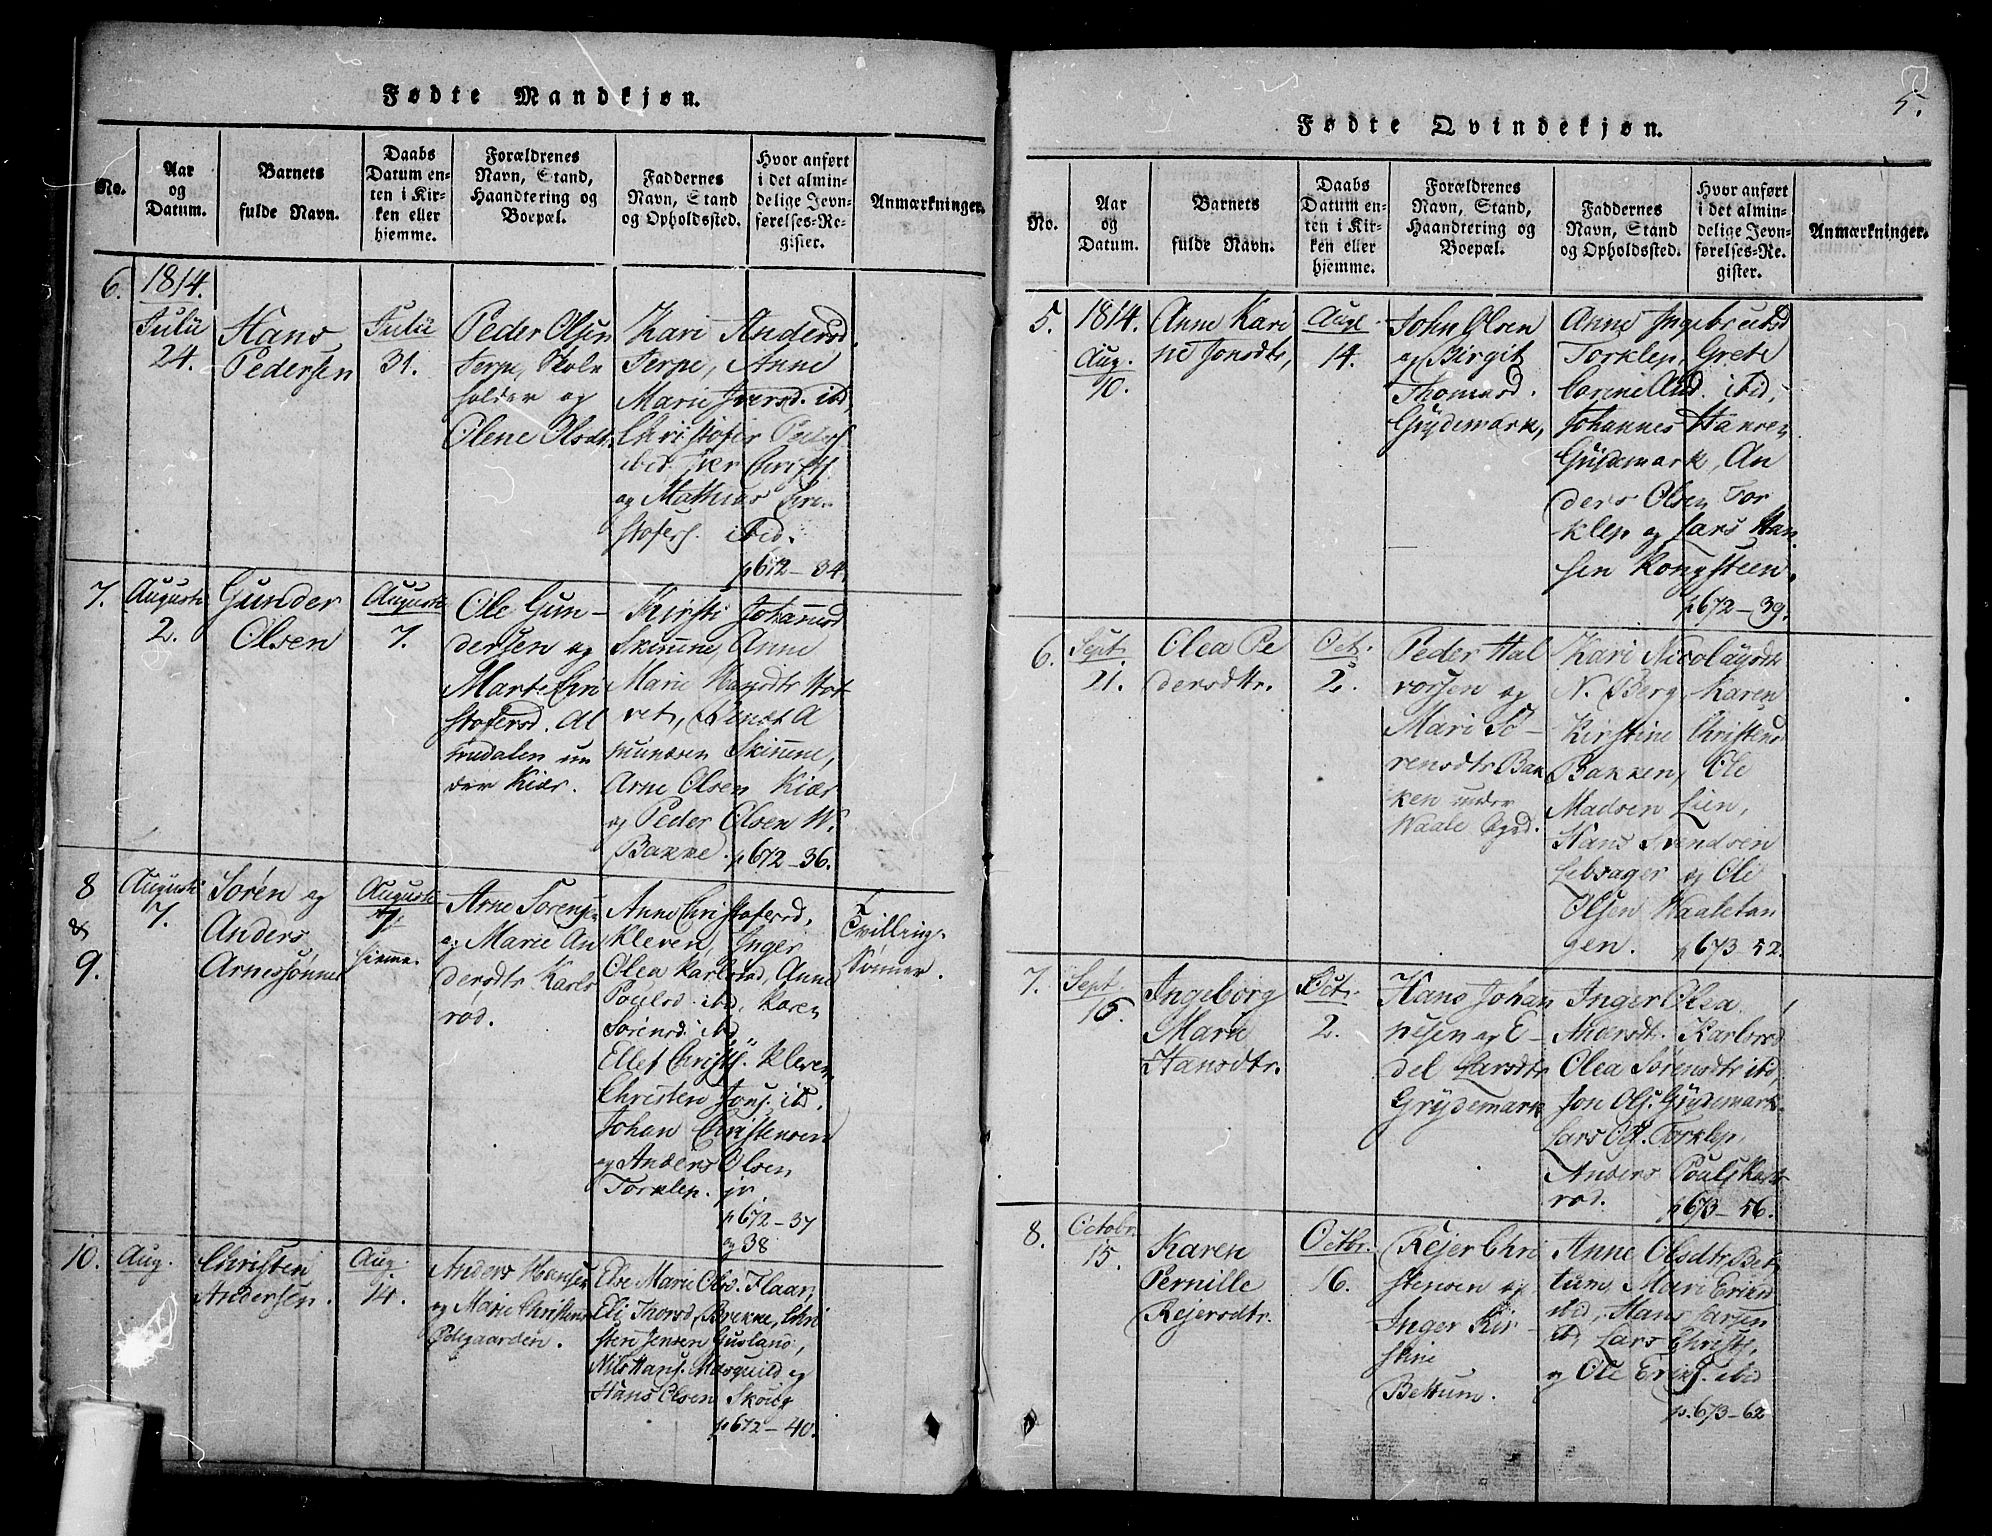 Fødte Mandkjøn.
No.
Aar
og
Datum.
Barnets
fulde Navn.
Daabs
Datum en-
ten i Kir-
ken eller
hjemme.
Forældrenes
Navn, Stand,
Haandtering og
Boepæl.
Faddernes
Navn, Stand
og Opholdssted.
Hvor anført
i det almin-
delige Jevn-
førelses-Re-
gister.
Anmærkninger.
6.
1814.
Julii
24.
Hans
Pedersen
Julii
31.
Peder Olsen
Terpe, Skole
holder og
Olene Olsdt.
Kari Andersd.
Terpe, Anne
Marie Iversd. ibd,
Christofer Peders.
ibid. Iver Christs.
og Mathias Chri-
stofers. ibid.
p 672-34.
7.
Augusti
2.
Gunder
Olsen
Augusti
7.
Ole Gun-
dersen og
Marte Chri
stofersd.
under Kiær.
Kirsti Johannesd
Skimme, Anne
Marie
munsen Skimme,
Arne Olsen Kiær
og Peder Olsen W.
Bakke. p 672-36.
8
&
9.
Augusti
7.
Soren og
Anders
Arnessønner
Augusti
7.
hjemme.
Arne Sorensen
og Marie An
dersdtr Karls
rød.
Anne Christofersd.
Kleven, Inger
Olea Karlsrød, Anne
Poulsd. ibd, Karen
Sörensd. ibd,
Ellef Christs. Kleven
Christen Jons. ibd.
Johan Christensen
og Anders Olsen
Torklep. jv.
p 672-37
og 38
Tvilling-
Sønner.
10.
Aug.
Christen
Andersen.
Aug.
14.
Anders Hansen
og Marie Christens
Ødegaarden.
Else Marie Olsd. Flaan,
Eli Thorsd. Brekke, Chri
sten Jensen Gusland,
Nils Hans. Masquild og
Hans Olsen Skoug
p 672-40.
5.
Fødte Qvindekjøn.
No.
Aar
og
Datum.
Barnets
fulde Navn.
Daabs
Datum en-
ten i Kir-
ken eller
hjemme.
Forældrenes
Navn, Stand,
Haandtering og
Boepæl.
Faddernes
Navn, Stand
og Opholdssted.
Hvor anført
i det almin-
delige Jevn-
førelses-Re-
gister.
Anmærkninger.
5.
1814.
Aug.
10.
Anne Kari
ne Jonsdtr,
Aug.
14.
John Olsen
og Birgit
Thomasd.
Grydemark,
Anne Ingebretsd
Torklep, Grete
Corneliusd. ibid,
Johannes Hansen
Grydemark, An
ders Olsen Tor
klep og Lars Han
sen Kongsteen.
p 672-39.
6.
Sept.
21.
Olea Pe
dersdtr.
Oct.
2.
Peder Hal
vorsen og
Mari Sö-
rensdtr Bak
ken under
Waale Sogn.
Kari Nicolaysdtr
N. Berg Karen
Kirstine Christens
Bakken, Ole
Madsen Lien,
Hans Svendsen
Lebsager og Ole
Olsen Waaletan
gen. p 673-52.
7.
Sept.
15.
Ingeborg
Marie
Hansdtr.
Oct.
2.
Hans Johan
nesen og E-
del Larsdtr
Grydemark
Inger Olea
Andersdtr. Karlsrød
Olea Sörensdtr ibd,
Jon Ols. Grydemark.
Lars Ols. Torklep,
Anders Pouls Karls
rød. p 673-56.
8.
Octobr.
15.
Karen
Pernille
Rejersdtr.
Octbr.
16.
Rejer Chri
stensen og
Inger Kir-
stine
Bettum.
Anne Olsdtr Bet
tum, Mari Eriksd
ibid, Hans Larsen
ibd, Lars Christs,
og Ole Eriks. ibid
p. 673-62